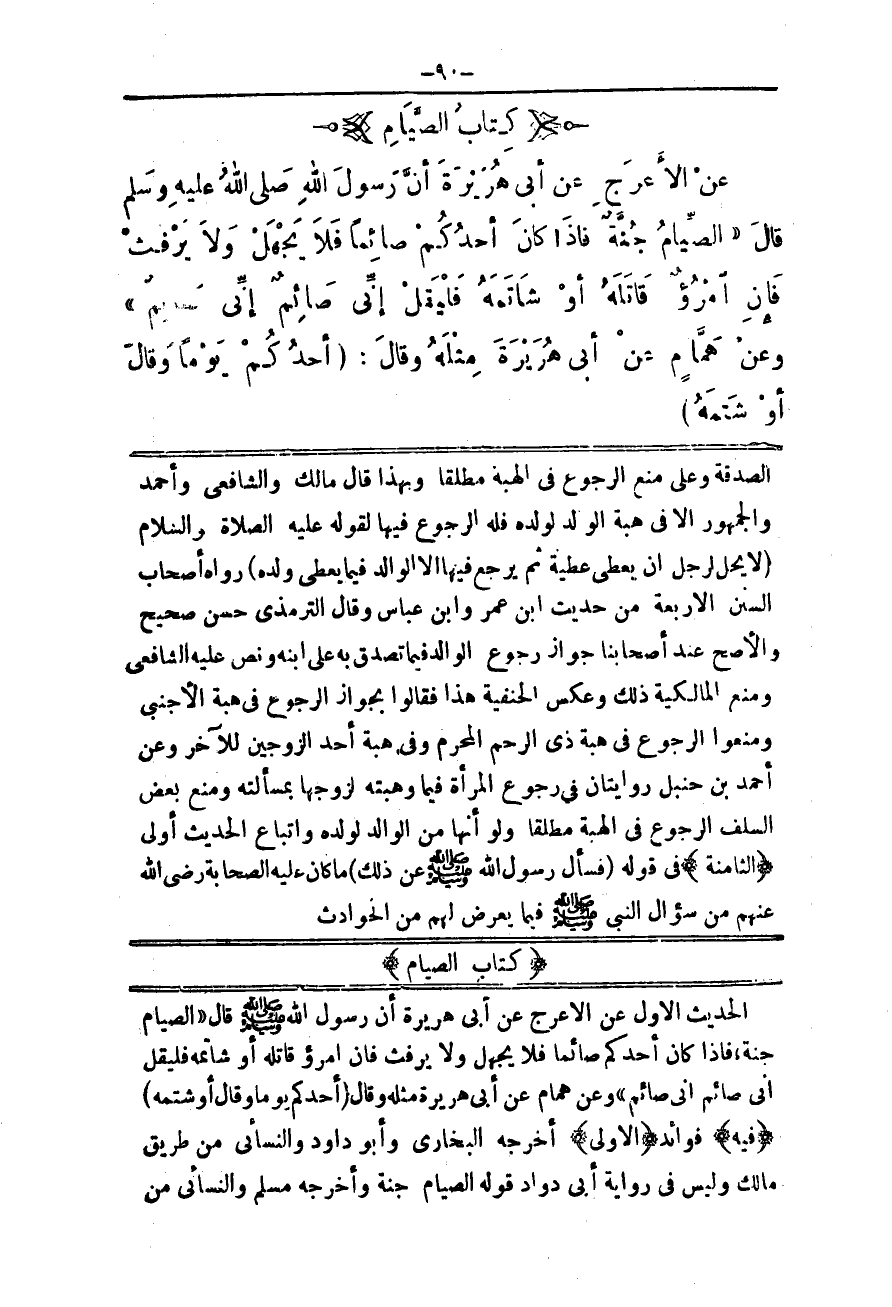 -٩٠-
كِتابُ الصِّيَامِ
عنْ الأَعرَجِ عن أبى هُرَيْرَةَ أنَّ رَسولَ اللهِ صَلى اللهُ عليهِ وسَلم
قالَ « الصِّيامُ جُنَّةٌ فاذَا كانَ أحدُكُمْ صائِماً فَلاَ يَجْهَلْ وَلاَ يَرْفثْ
فَإِنِ امْرُؤٌ قَاتَلَهُ أوْ شاتَمَهُ فَلْيَقلْ إنِّى صَائِمٌ إنِّى صَائِمٌ »
وعنْ هَمَّامٍ عنْ أبى هُرَيْرَةَ مِثْلَهُ وقالَ : ( أحدُكُمْ يَوْماً وَقالَ
أوْ شَتمهُ )
الصدقة وعلى منع الرجوع فى الهبة مطلقا وبهذا قال مالك والشافعى وأحمد
والجمهور الا فى هبة الوالد لولده فله الرجوع فيها لقوله عليه الصلاة والسلام
(لا يحل لرجل ان يعطى عطية ثم يرجع فيها الا الوالد فيما يعطى ولده) رواه أصحاب
السنن الاربعة من حديث ابن عمر وابن عباس وقال الترمذى حسن صحيح
والأصح عند أصحابنا جواز رجوع الوالد فيما تصدق به على ابنه ونص عليه الشافعى
ومنع المالكية ذلك وعكس الحنفية هذا فقالوا بجواز الرجوع فى هبة الأجنبى
ومنعوا الرجوع فى هبة ذى الرحم المحرم وفى هبة أحد الزوجين للآخر وعن
أحمد بن حنبل روايتان فى رجوع المرأة فيما وهبته لزوجها بمسألته ومنع بعض
السلف الرجوع فى الهبة مطلقا ولو أنها من الوالد لولده واتباع الحديث أولى
﴿الثامنة﴾ فى قوله (فسأل رسول الله ﷺ عن ذلك) ما كان عليه الصحابة رضى الله
عنهم من سؤال النبى ﷺ فيما يعرض لهم من الحوادث
﴿ كتاب الصيام ﴾
الحديث الاول عن الاعرج عن أبى هريرة أن رسول الله ﷺ قال « الصيام
جنة، فاذا كان أحدكم صائما فلا يجهل ولا يرفث فان امرؤ قاتله أو شاتمه فليقل
انى صائم انى صائم » وعن همام عن أبى هريرة مثله وقال (أحدكم يوما وقال أو شتمه)
﴿فيه﴾ فوائد ﴿الاولى﴾ أخرجه البخارى وأبو داود والنسائى من طريق
مالك وليس فى رواية أبى دواد قوله الصيام جنة وأخرجه مسلم والنسائى من